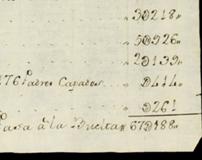 3D218
5D926
2D139
176 Padres Capados D414
D261
Pasa à la Buelta 67D188